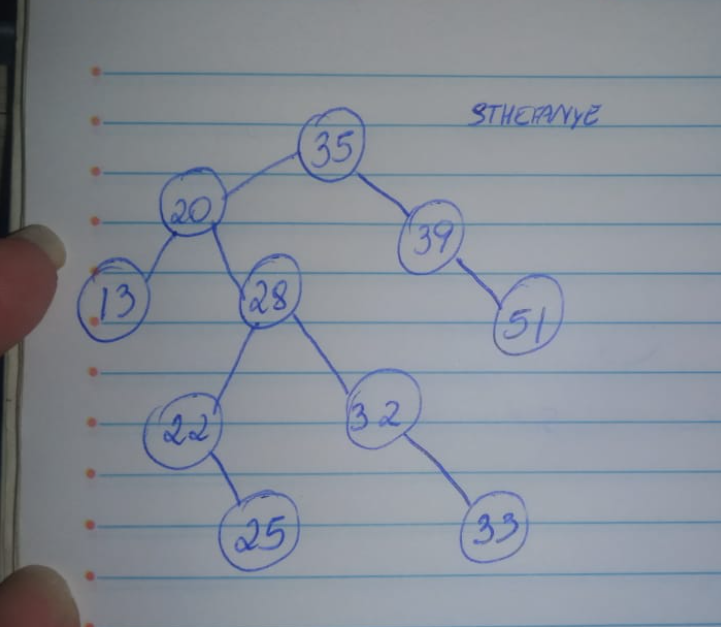 STHEFANYE
35
20
39
13
28
51
22
32
25
33